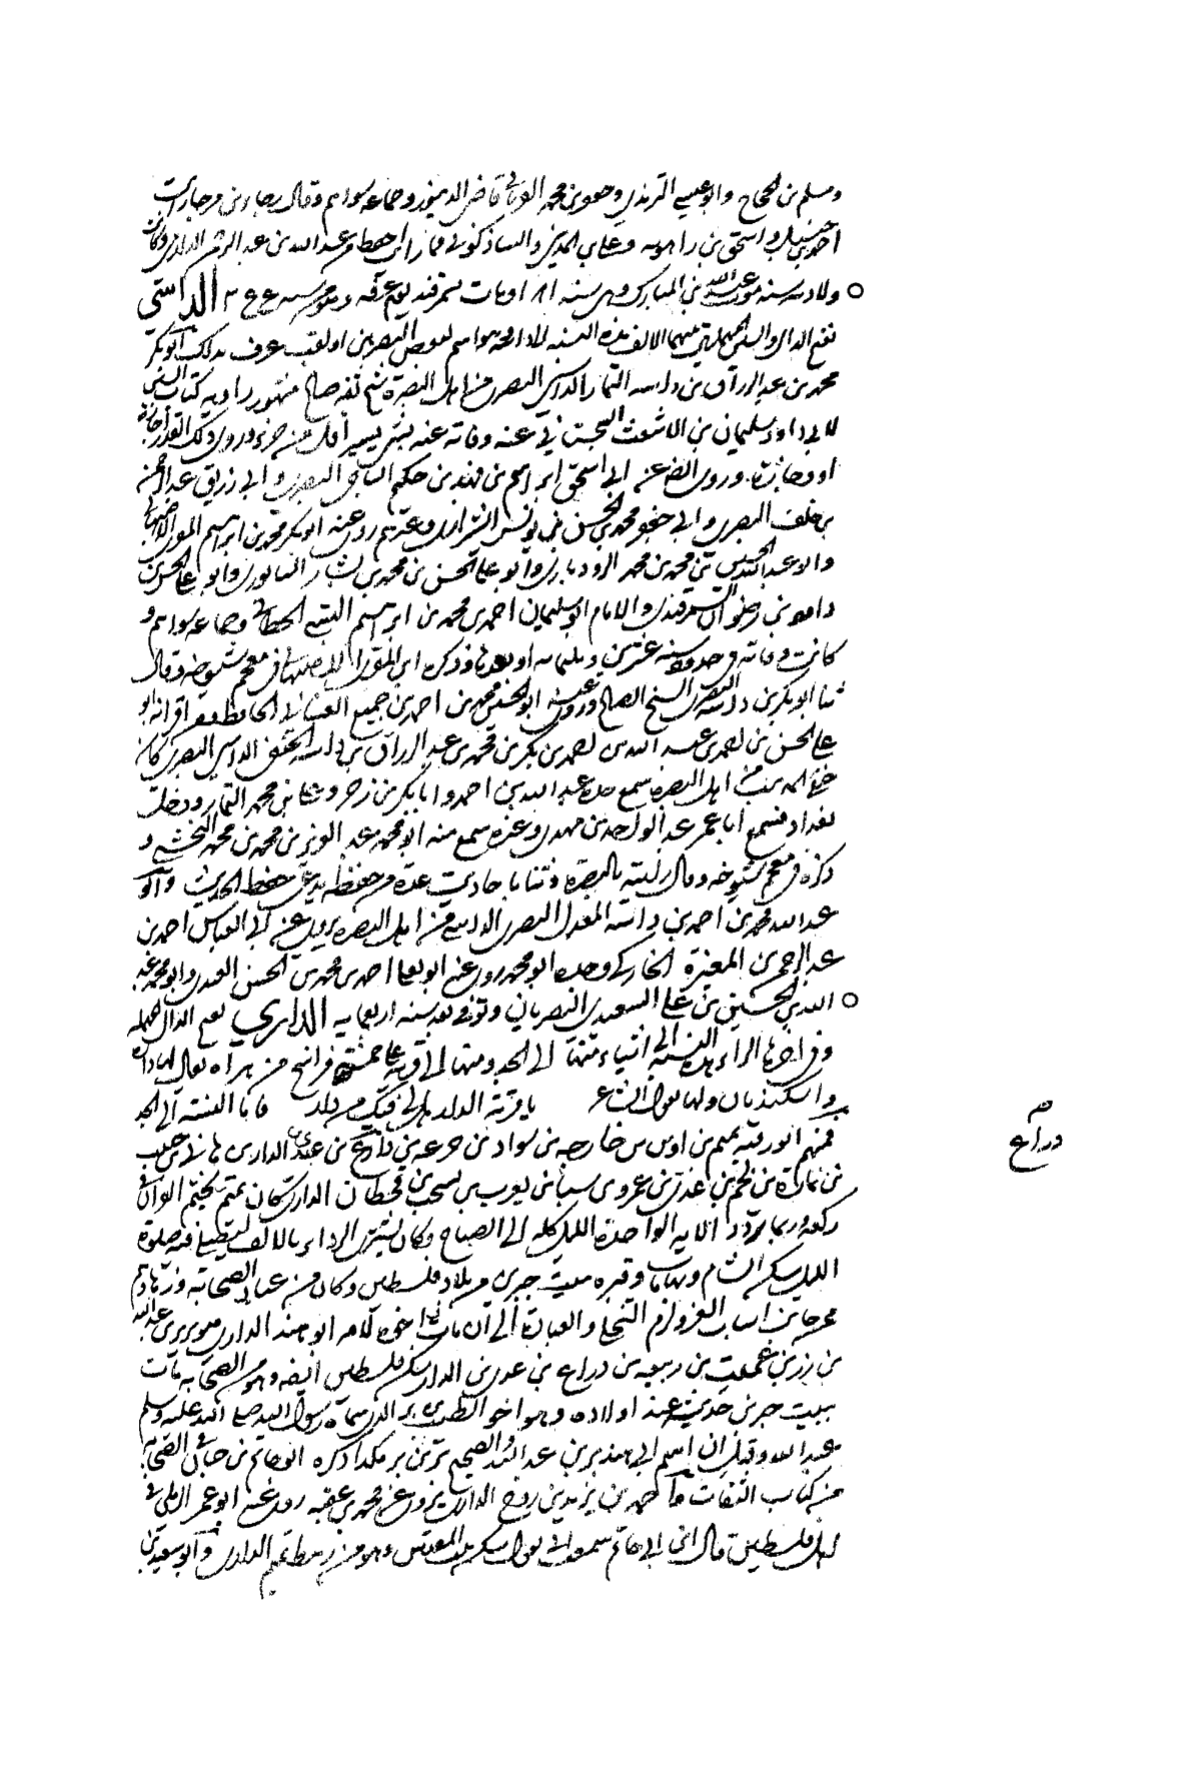 ومسلم بن الحجاج وابو عيسى الترمذي وجعفر بن محمد الفريابي قاضي الدينور وجماعة سواهم وقال رجاء بن مرجا رايت
احمد بن حنبل واسحق بن راهويه وعلي بن المديني والشاذكوني فما رايت احفظ من عبد الله بن عبد الرحمن الدارمي وكانت
ولادته سنة موت عبد الله بن المبارك وهي سنة ١٨١ ومات بسمرقند يوم عرفة الداسي
بفتح الدال والسين المهملتين بينهما الالف هذه النسبة الى داسة وهو اسم لبعض البصريين او لقب عرف بذلك ابو بكر
محمد بن عبد الرزاق بن داسة التمار الداسي البصري من اهل البصرة شيخ ثقة صالح مشهور راوية كتاب السنن
لابي داود سليمان بن الاشعث السجستاني عنه وفاته عنه شي يسير اقل من جزء وروى ذلك القدر اجازة
او وجازة وروى ايضا عن ابي اسحق ابراهيم بن فهد بن حكيم الساجي البصري وابي رزيق عبد الرحمن
بن خلف البصري وابي جعفر محمد بن الحسن بن يونس الشيرازي وغيرهم روى عنه ابو بكر محمد بن ابراهيم المقري الاصبهاني
وابو عبد الله الحسين بن محمد بن محمد الروذباري وابو علي الحسن بن محمد بن بشار النيسابوري وابو علي الحسن بن
داود بن رضوان السمرقندي والامام ابو سليمان احمد بن محمد بن ابراهيم البستي الخطابي وجماعة سواهم و
كانت وفاته في حدود سنة عشرين وثلثمائة او بعدها وذكره ابن المقري الاصبهاني في معجم شيوخه وقال
ثنا ابو بكر بن داسة البصري الشيخ الصالح وروى عنه ابو الحسين محمد بن احمد بن جميع الغساني الحافظ اقرانه ابو
علي الحسن بن احمد بن عبد الله بن احمد بن بكر بن محمد بن عبد الرزاق بن داسة الداسي البصري كان
من اهل البصرة سمع جده عبد الله بن احمد وابا بكر بن زحر وعلي بن محمد التمار ودخل
بغداد فسمع ابا عمر عبد الواحد بن مهدي وغيره سمع منه ابو محمد عبد العزيز بن محمد بن محمد النخشبي و
ذكره في معجم شيوخه وقال رايته بالبصرة وثنا باحاديث عدة من حفظه يدعي حفظ الحديث وابو
عبد الله محمد بن احمد بن داسة المعدل البصري الداسي من اهل البصرة يروي عن ابي العباس احمد بن
عبد الرحمن المغيرة البخاري وجده ابو محمد روى عنه ابو يعلى احمد بن محمد بن الحسن العبدي وابو محمد عبد
الله بن الحسين بن علي السعيدي البصريان وتوفي بعد سنة اربعمائة الداري بفتح الدال المهملة
وفي اخرها الراء هذه النسبة الى اشياء منها الى الجد ومنها الى قرية على خمسة فراسخ من هراة يقال لها دار
واسكيذبان ولها يقول الشاعر يا قرية الدار هل لي فيك من دار فاما النسبة الى الجد
فمنهم ابو رقية تميم بن اوس بن خارجة بن سواد بن خزيمة بن ذراع بن عدي الداري هاني بن حبيب
بن نمارة بن لخم بن عدي بن عمرو بن سبا بن يعرب بن يشجب بن قحطان الداري كان تميم يختم القران في
ركعة وربما يردد الاية الواحدة الليل كله الى الصباح وكان يشتري الرداء بالالف ليصلي فيه صلوة
الليل سكن الشام وبها مات وقبره ببيت جبرين من بلاد فلسطين وكان من عباد الصحابة وزهادهم
ممن جانب اسباب الغرة ولزم التخلي والعبادة الى ان مات واخوه لامه ابو هند الداري هو برير بن عبد الله
بن رزين بن عميت بن ربيعة بن دراع بن عدي بن الدار سكن فلسطين ايضا وهو من الصحابة مات
ببيت جبرين حديثه عند اولاده وهو اخو الطيب بن بر الذي سماه رسول الله صلى الله عليه وسلم
عبد الله وقيل ان اسم ابي هند برير بن عبد الله والصحيح بر بن بر هكذا ذكره ابو حاتم بن حبان في الصحابة
من كتاب الثقات واحمد بن يزيد بن روح الداري يروي عن محمد بن عقبة روى عنه ابو عمر الرملي في
اهل فلسطين قال ابن ابي حاتم سمعت ابي يقول سكن بيت المقدس وهو من رهط تميم الداري وابو سعيد بن
صح
دراع